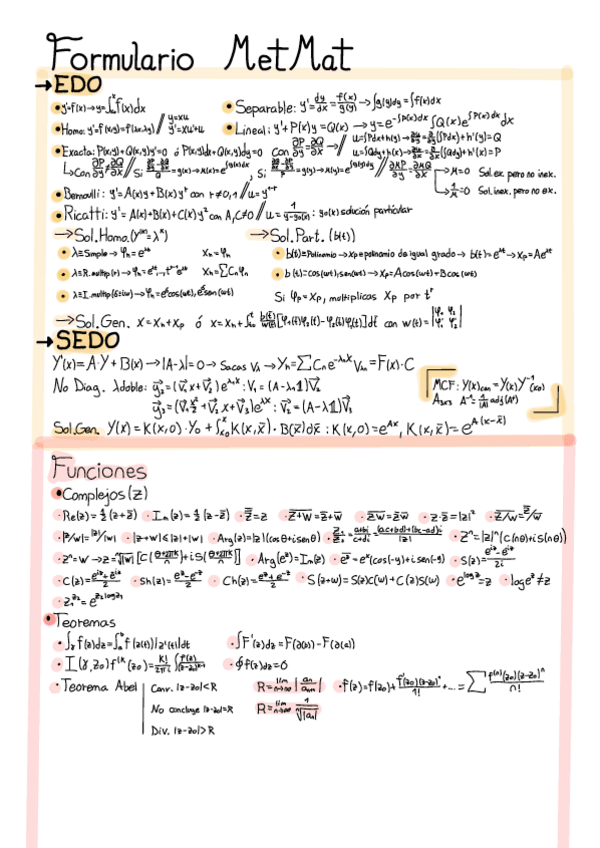 Formulario MetMat
→ EDO
• y'=f(x) → y=∫f(x)dx • Separable: y'=dy/dx=f(x)/g(y) → ∫g(y)dy=∫f(x)dx
• Homo: y'=f(x,y)=f(λx,λy) // y=xu y'=xu'+u • Lineal: y'+P(x)y=Q(x) → y=e^-∫P(x)dx ∫Q(x)e^∫P(x)dx dx
• Exacta: P(x,y)+Q(x,y)y'=0 ó P(x,y)dx+Q(x,y)dy=0 con ∂P/∂y=∂Q/∂x
↳ Con ∂P/∂y≠∂Q/∂x // Si
μ=0 Sol. ex. pero no inex.
1/μ=0 Sol. inex. pero no ex.
• Bernoulli: y'=A(x)y+B(x)y^r con r≠0,1 // u=y^1-r
• Ricatti: y'=A(x)+B(x)+C(x)y² con A,C≠0 // u=1/(y-y₀(x)) : y₀(x) solución particular
→ Sol. Homo. (y^(n)=λ^n) → Sol. Part. (b(t))
• λ≡Simple → φn=e^λt Xn=φn • b(t)≡Polinomio → Xp≡polinomio de igual grado → b(t)=e^λt → Xp=Ae^λt
• λ≡R. multip(r) → φn=e^λt,...,t^r-1 e^λt Xn=∑Cnφn • b(t)=cos(wt),sen(wt) → Xp=Acos(wt)+Bcos(wt)
• λ≡I. multip(δ±iω) → φn=e^δt cos(wt), e^δt sen(wt) Si φp=Xp, multiplicas Xp por t^r
→ Sol. Gen. X=Xn+Xp ó X=Xn+∫ b(t)/w(t) [φ₁(t)φ₂(t)-φ₂(t)φ₁(t)]dt con w(t)=
→ SEDO
Y'(x)=A·Y+B(x) → |A-λ|=0 → Sacas Vλ → Yn=∑Cn e^-λnX Vλn=F(x)·C
No Diag. λdoble: y₂=(V₁x+V₂)e^λnX : V₁=(A-λn1)V₂
y₃=(V₁x²/2+V₂x+V₃)e^λX : V₂=(A-λ1)V₃
MCF: Y(x)can=Y(x)Y⁻¹(x₀)
A₃ₓ₃ A⁻¹=1/|A| adj(Aᵗ)
Sol. Gen. Y(x)=K(x,0)·Y₀+∫K(x,x̄)·B(x̄)dx̄ : K(x,0)=e^Ax, K(x,x̄)=e^A(x-x̄)
Funciones
• Complejos (z)
• Re(z)=½(z+z̄) • Im(z)=½(z-z̄) • z̿=z • z+w=z̄+w̄ • zw=z̄w̄ • z·z̄=|z|² • z/w=z̄/w̄
• |z/w|=|z|/|w| • |z+w|≤|z|+|w| • Arg(z)=|z|(cosθ+isenθ) • z₁/z₂=(a+bi)/(c+di)=((ac+bd)+(bc-ad)i)/|z| • z^n=|z|^n(c(nθ)+iS(nθ))
• z^n=w → z=ⁿ√|w| [C((θ+2πK)/n)+iS((θ+2πK)/n)] • Arg(e^z)=Im(z) • e^z̄=e^x(cos(-y)+isen(-y) • S(z)=(e^iz-e^-iz)/2i
• C(z)=(e^iz+e^-iz)/2 • Sh(z)=(e^z-e^-z)/2 • Ch(z)=(e^z+e^-z)/2 • S(z+w)=S(z)C(w)+C(z)S(w) • e^logz=z • loge^z≠z
• z₁^z₂=e^z₂logz₁
• Teoremas
• ∫f(z)dz=∫f(z(t))z'(t)dt • ∫F'(z)dz=F(∂(b))-F(∂(a))
• I(γ,z₀)f^(k)(z₀)=k!/2πi ∫f(z)/(z-z₀)^k+1 • ∮f(z)dz=0
• Teorema Abel Conv. |z-z₀|<R R=lim n→∞ |an/an+1| • f(z)=f(z₀)+f'(z₀)(z-z₀)/1!+...=∑ f^(n)(z₀)(z-z₀)^n/n!
No concluye |z-z₀|=R R=lim n→∞ 1/ⁿ√|an|
Div. |z-z₀|>R